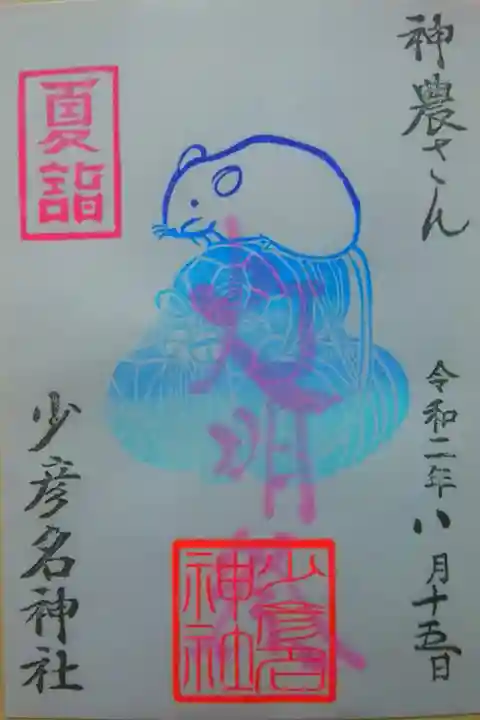 神農さん
令和二年八月十五日
夏詣
少彦名
神社
少彦名神社